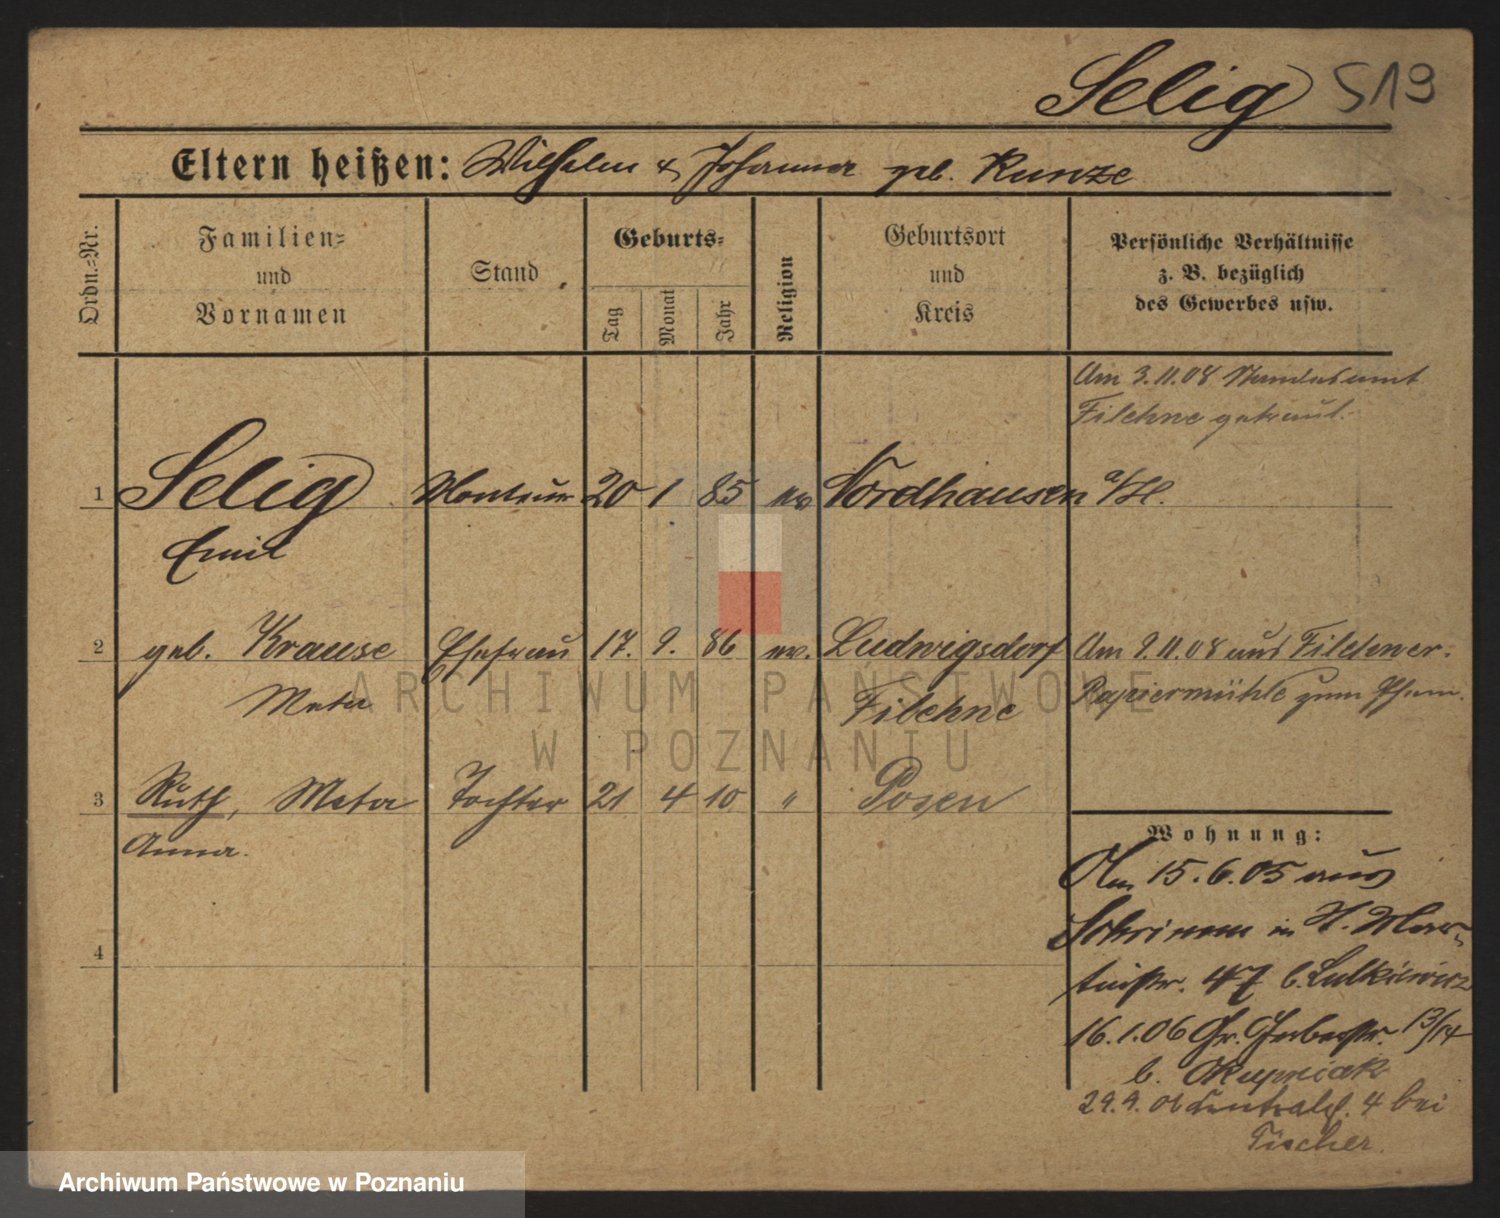 Selig S13
Eltern heißen: Wilhelm & Johanna geb. Kunze
Ordn.-Nr.
Familien-
und
Vornamen
Stand
Geburts-
Tag
Monat
Jahr
Religion
Geburtsort
und
Kreis
Persönliche Verhältnisse
z. B. bezüglich
des Gewerbes usw.
Am 3.11.08 Standesamt
Filehne getraut.
1 Selig Monteur 20 1 85 ev Nordhausen a/H.
Emil
2 geb. Krause Ehefrau 17. 9. 86 ev. Ludwigsdorf Am 9.11.08 aus Filehner-
Meta Filehne Papiermühle zum
3 Ruth, Meta Tochter 21 4 10 " Posen
Anna.
Wohnung:
Am 15.6.05 aus
Schrimm in H. Mar-
tinstr. 47 b.
4
16.1.06 Gr. Gerberstr. 13/14
b. Okupniak
29.9.06 4 bei
Fischer.
ARCHIWUM PAŃSTWOWE
W POZNANIU
Archiwum Państwowe w Poznaniu